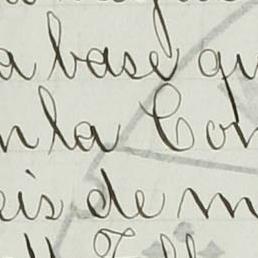 a base qu
n la Con
eis de m